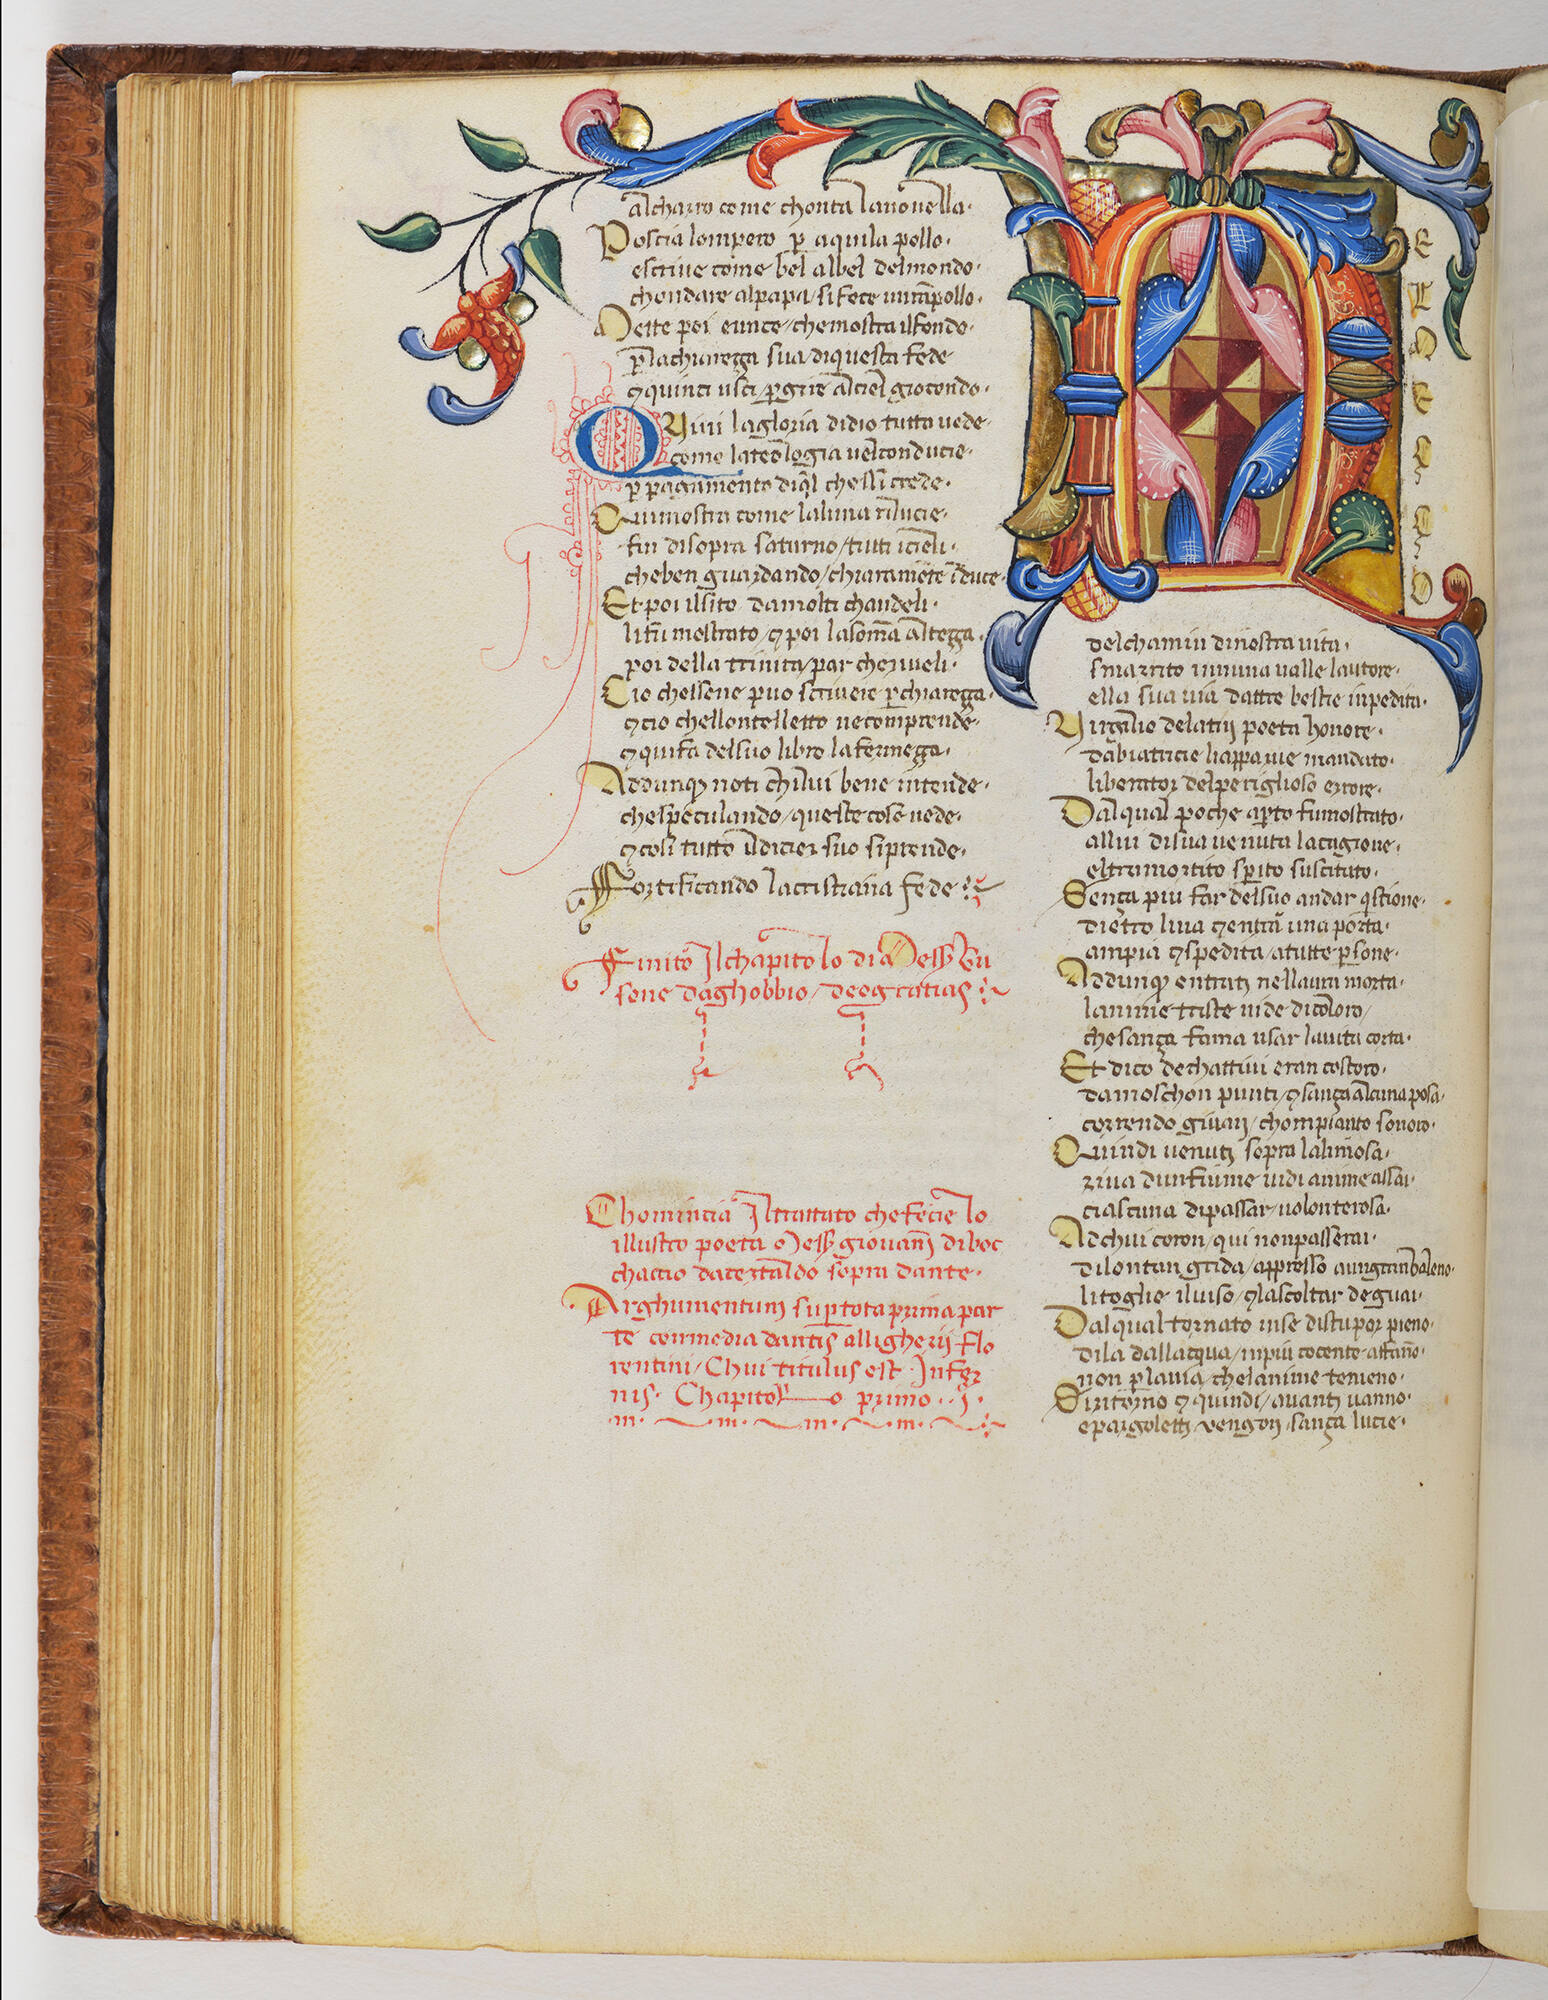 alcharro come chonta lanouella·
Poscia lompero p̄ aquila pollo·
escriue come bel albel delmondo·
chondare alpapa/ sifece un rāpollo·
Mette poi eunce/ chemostra ilfondo·
p̄lachiareça sua diquesta fede
⁊quinci usci/ p̱gire alciel giocondo·
QUiui lagloria didio tutta uede·
come lateologia uelconducie·
p̱ pagamento diq̄l che lli crede·
Quimostra come laluna rilucie·
fin disopra saturno/ tutti icieli·
cheben guardando/ chiaramēte
Et poi ilsito damolti chandeli·
lifū mostrato/ ⁊poi lasoma alteça·
poi della trinita/ par cheriueli·
Cio chessene puo scriuere p̱chiareça·
⁊cio chellontelletto necomprende·
⁊quifa delsuo libro lafermeça·
Addunq̨ noti chilui bene intende·
chespeculando/ queste cose uede·
⁊cosi tutto ildicier suo siprende·
Fortificando lacristiana fede
Finito Ilchapitolo di Mess Bu
sone daghobbio/ deogratias
Chomincia Iltrattato chefecie lo
illustro poeta Mess giouanī diboc
chaccio dacertaldo sopra dante·
Arghumentum suptota prima par
te commedia dantis alligherij flo
rentini/ Chui titulus est Infer
nis· Chapitolo primo··j·
·m· ·m· ·m· ·m·
NE
L
M
E
ç
ç
O
delchamin dinostra uita·
smarrito inuna ualle lautore·
ella sua uia dattre bestie inpedita·
Virgilio delatin poeta honore·
dabiatricie liapparue mandato·
liberator delperiglioso errore·
Dalqual poche ap̱to fumostrato·
allui disua uenuta lacagione·
eltramortito sp̱ito suscitato·
Sença piu far delsuo andar q̄stione·
dietro liua ⁊entrā una porta·
ampia ⁊spedita/ atutte p̱sone·
Addunq̨ entratj nellaura morta·
lanime triste uide dicoloro/
chesança fama usar lauita corta·
Et dico dechattiui eran costoro·
damoschon punti/ ⁊sança alcuna posa·
correndo giuan/ chompianto sonoro·
Quindi uenutj sopra lalimosa·
riua dunfiume uidi anime assai·
ciascuna dipassar/ uolonterosa·
Adchui coron/ qui nonpasserai·
dilontan grida/ appresso aungranbaleno·
litoglie iluiso/ ⁊lascoltar deguai·
Dalqual tornato inse distupor pieno·
dila dallacqua/ inpiu cocente affāno·
non p̱lauia/ chelanime tenieno·
Siritorno ⁊quindi/ auantj uanno·
epargolettj uengon/ sança lucie·